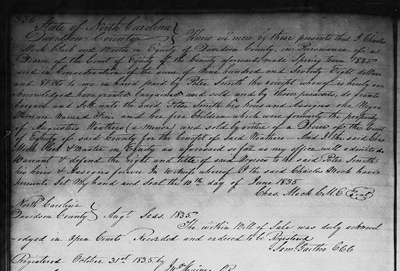 State of North Carolina
Davidson County } Know all men by these presents that I Charles
Mock Clerk and Master in Equity of Davidson County, in Pursuance of a
Decree of the Court of Equity of the County aforesaid made Spring Term 1835
and in Consideration of the sum of Nine hundred and Seventy Eight dollars
and to me in hand paid by Peter Smith the receipt whereof is hereby
acknowledged have granted bargained and sold and by these presents, do grant
bargain and Sell unto the said Peter Smith his heirs and Assigns One Negro
Woman Named and her five Children which were formerly the property
of Augustus (a Minor) and sold by virtue of a Decree of the Court
of Equity of said County for the benefit of said And I the said Chas
Mock Clerk & Master in Equity as aforesaid so far as my office will admit do
Warrant & defend the right and title of said Negroes to the said Peter Smith
his heirs & Assigns forever In Witness whereof I the said Charles Mock have
hereunto Set My hand and Seal this 10th day of June 1835
Chas. Mock C M E Seal
North Carolina
Davidson County } Augt Sess. 1835
The within Bill of Sale was duly acknowl
-edged in Open Court Recorded and ordered to be Registered
C C C
Registered October 31st 1835 by